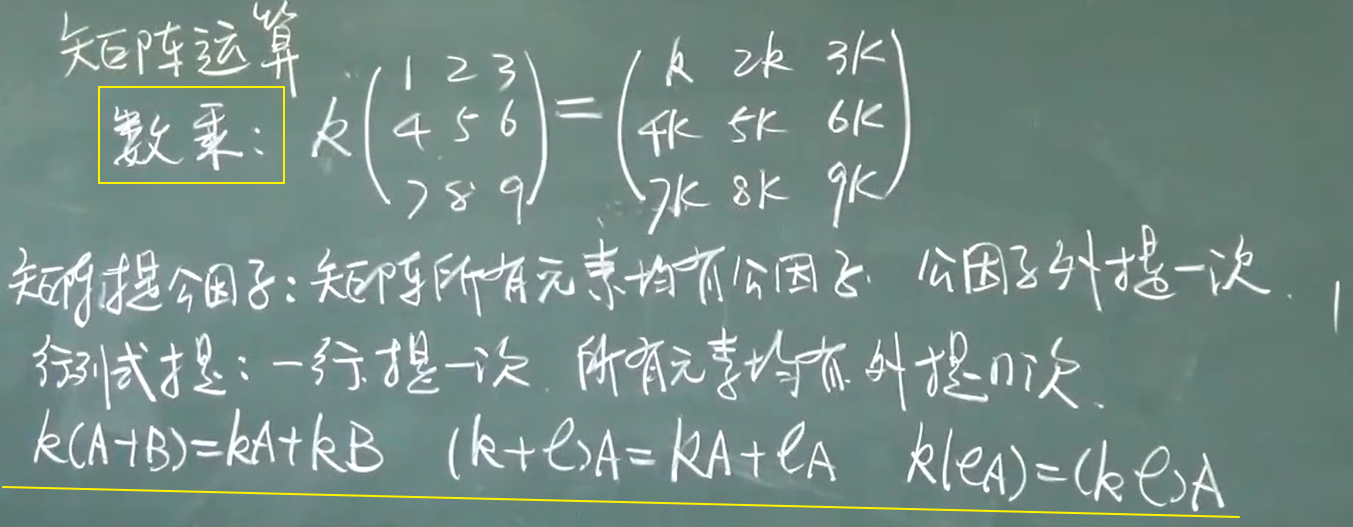 矩阵运算
数乘: k(1 2 3 = (k 2k 3k
4 5 6) 4k 5k 6k
7 8 9) 7k 8k 9k)
矩阵提公因子:矩阵所有元素均有公因子. 公因子外提一次.
行列式提:一行提一次. 所有元素均有外提n次.
k(A+B)=kA+kB (k+l)A=kA+lA k(lA)=(kl)A